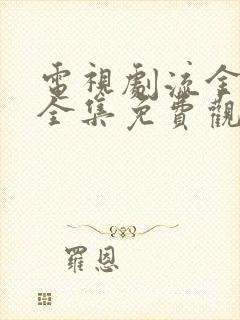 電視劇流金
全集免費觀
羅恩